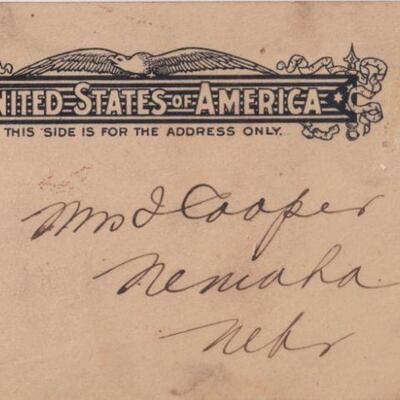 UNITED STATES OF AMERICA
THIS SIDE IS FOR THE ADDRESS ONLY.
Mrs J Cooper
Nemaha
Nebr